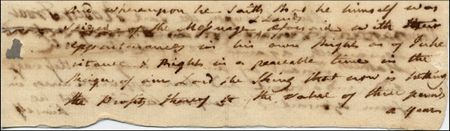 And whereupon he Saith that he himself was
Seized of the Messuage & Land aforesaid with their
appurtenances in his own Right as of Inhe
ritance & Right in a peaceable time in the
Reign of our Lord the King that now is taking
the Profits thereof to the value of three pence
a year